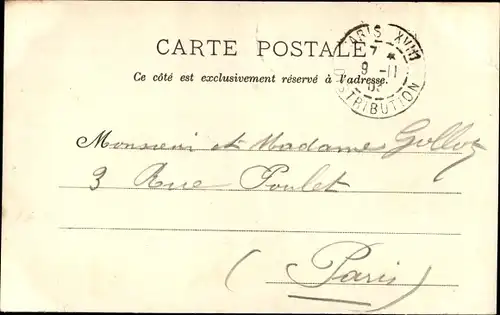 CARTE POSTALE
Ce côté est exclusivement réservé à l'adresse.
PARIS XVIII
7 *
9 -11
03
DISTRIBUTION
Monsieur et Madame
3 Rue Poulet
(Paris)